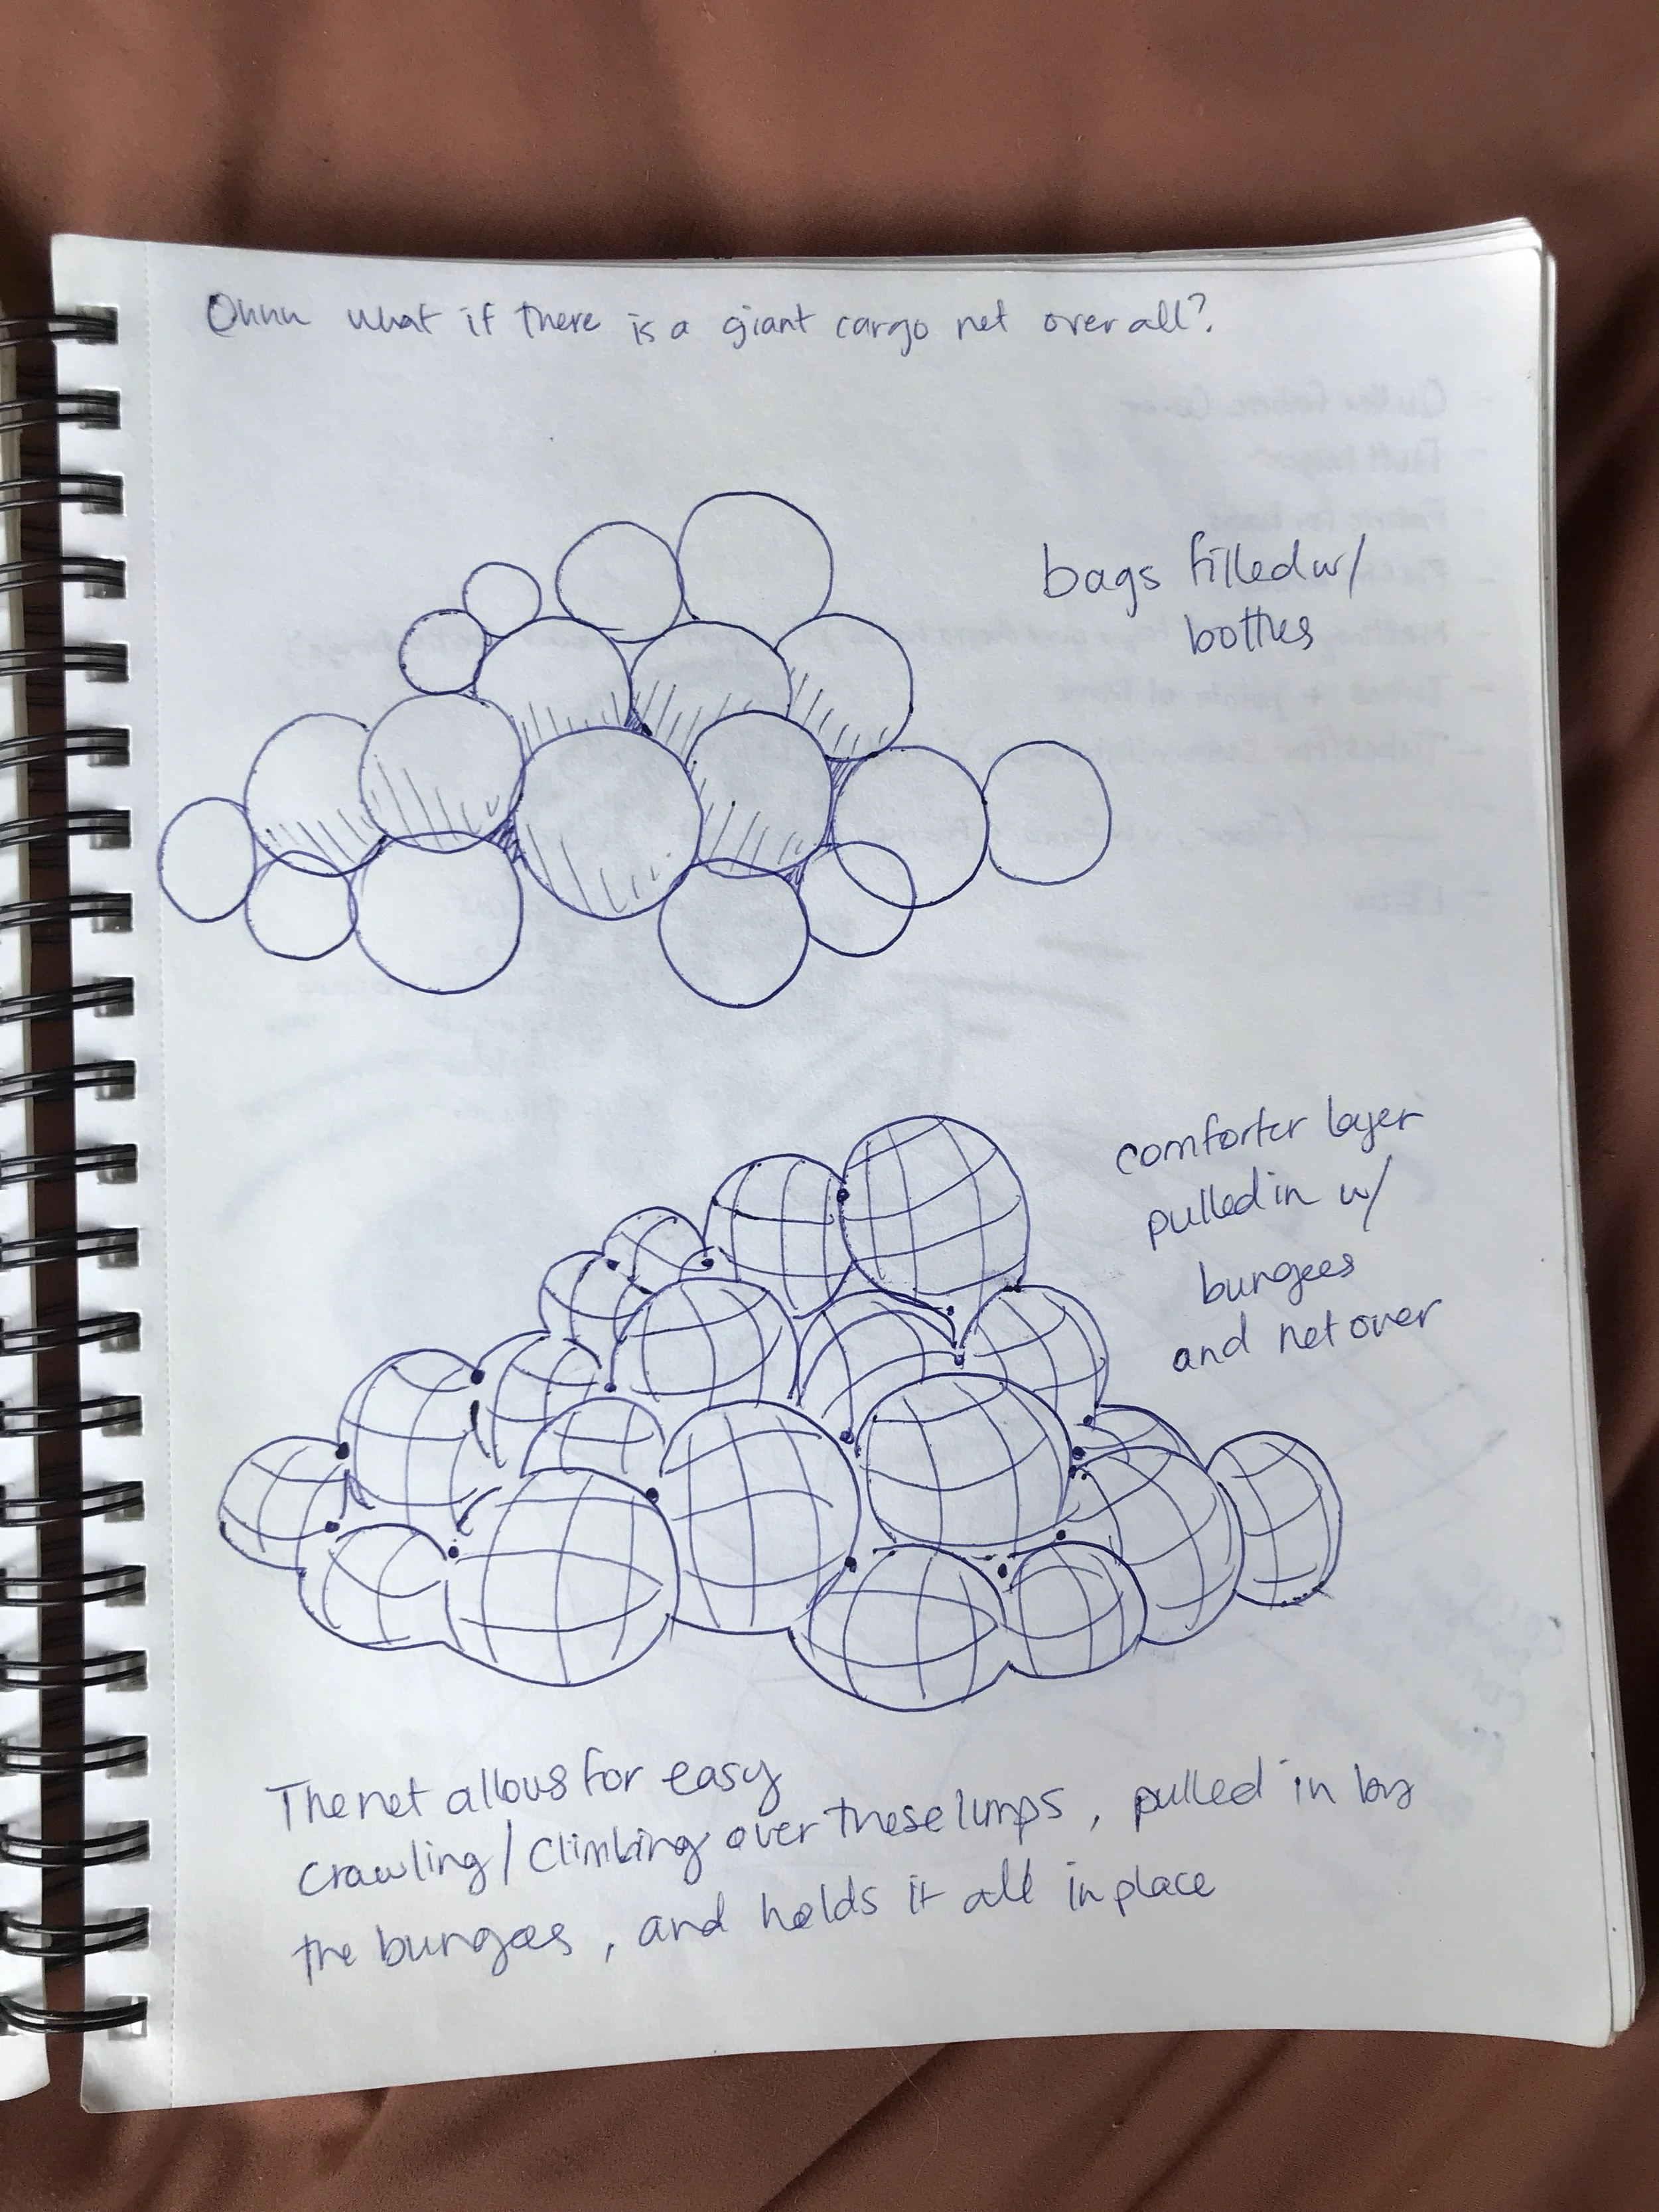 Ohhh what if there is a giant cargo net over all?
bags filled w/
bottles
comforter layer
pulled in w/
bungees
and net over
The net allows for easy
crawling/climbing over these lumps, pulled in by
the bungees, and holds it all in place